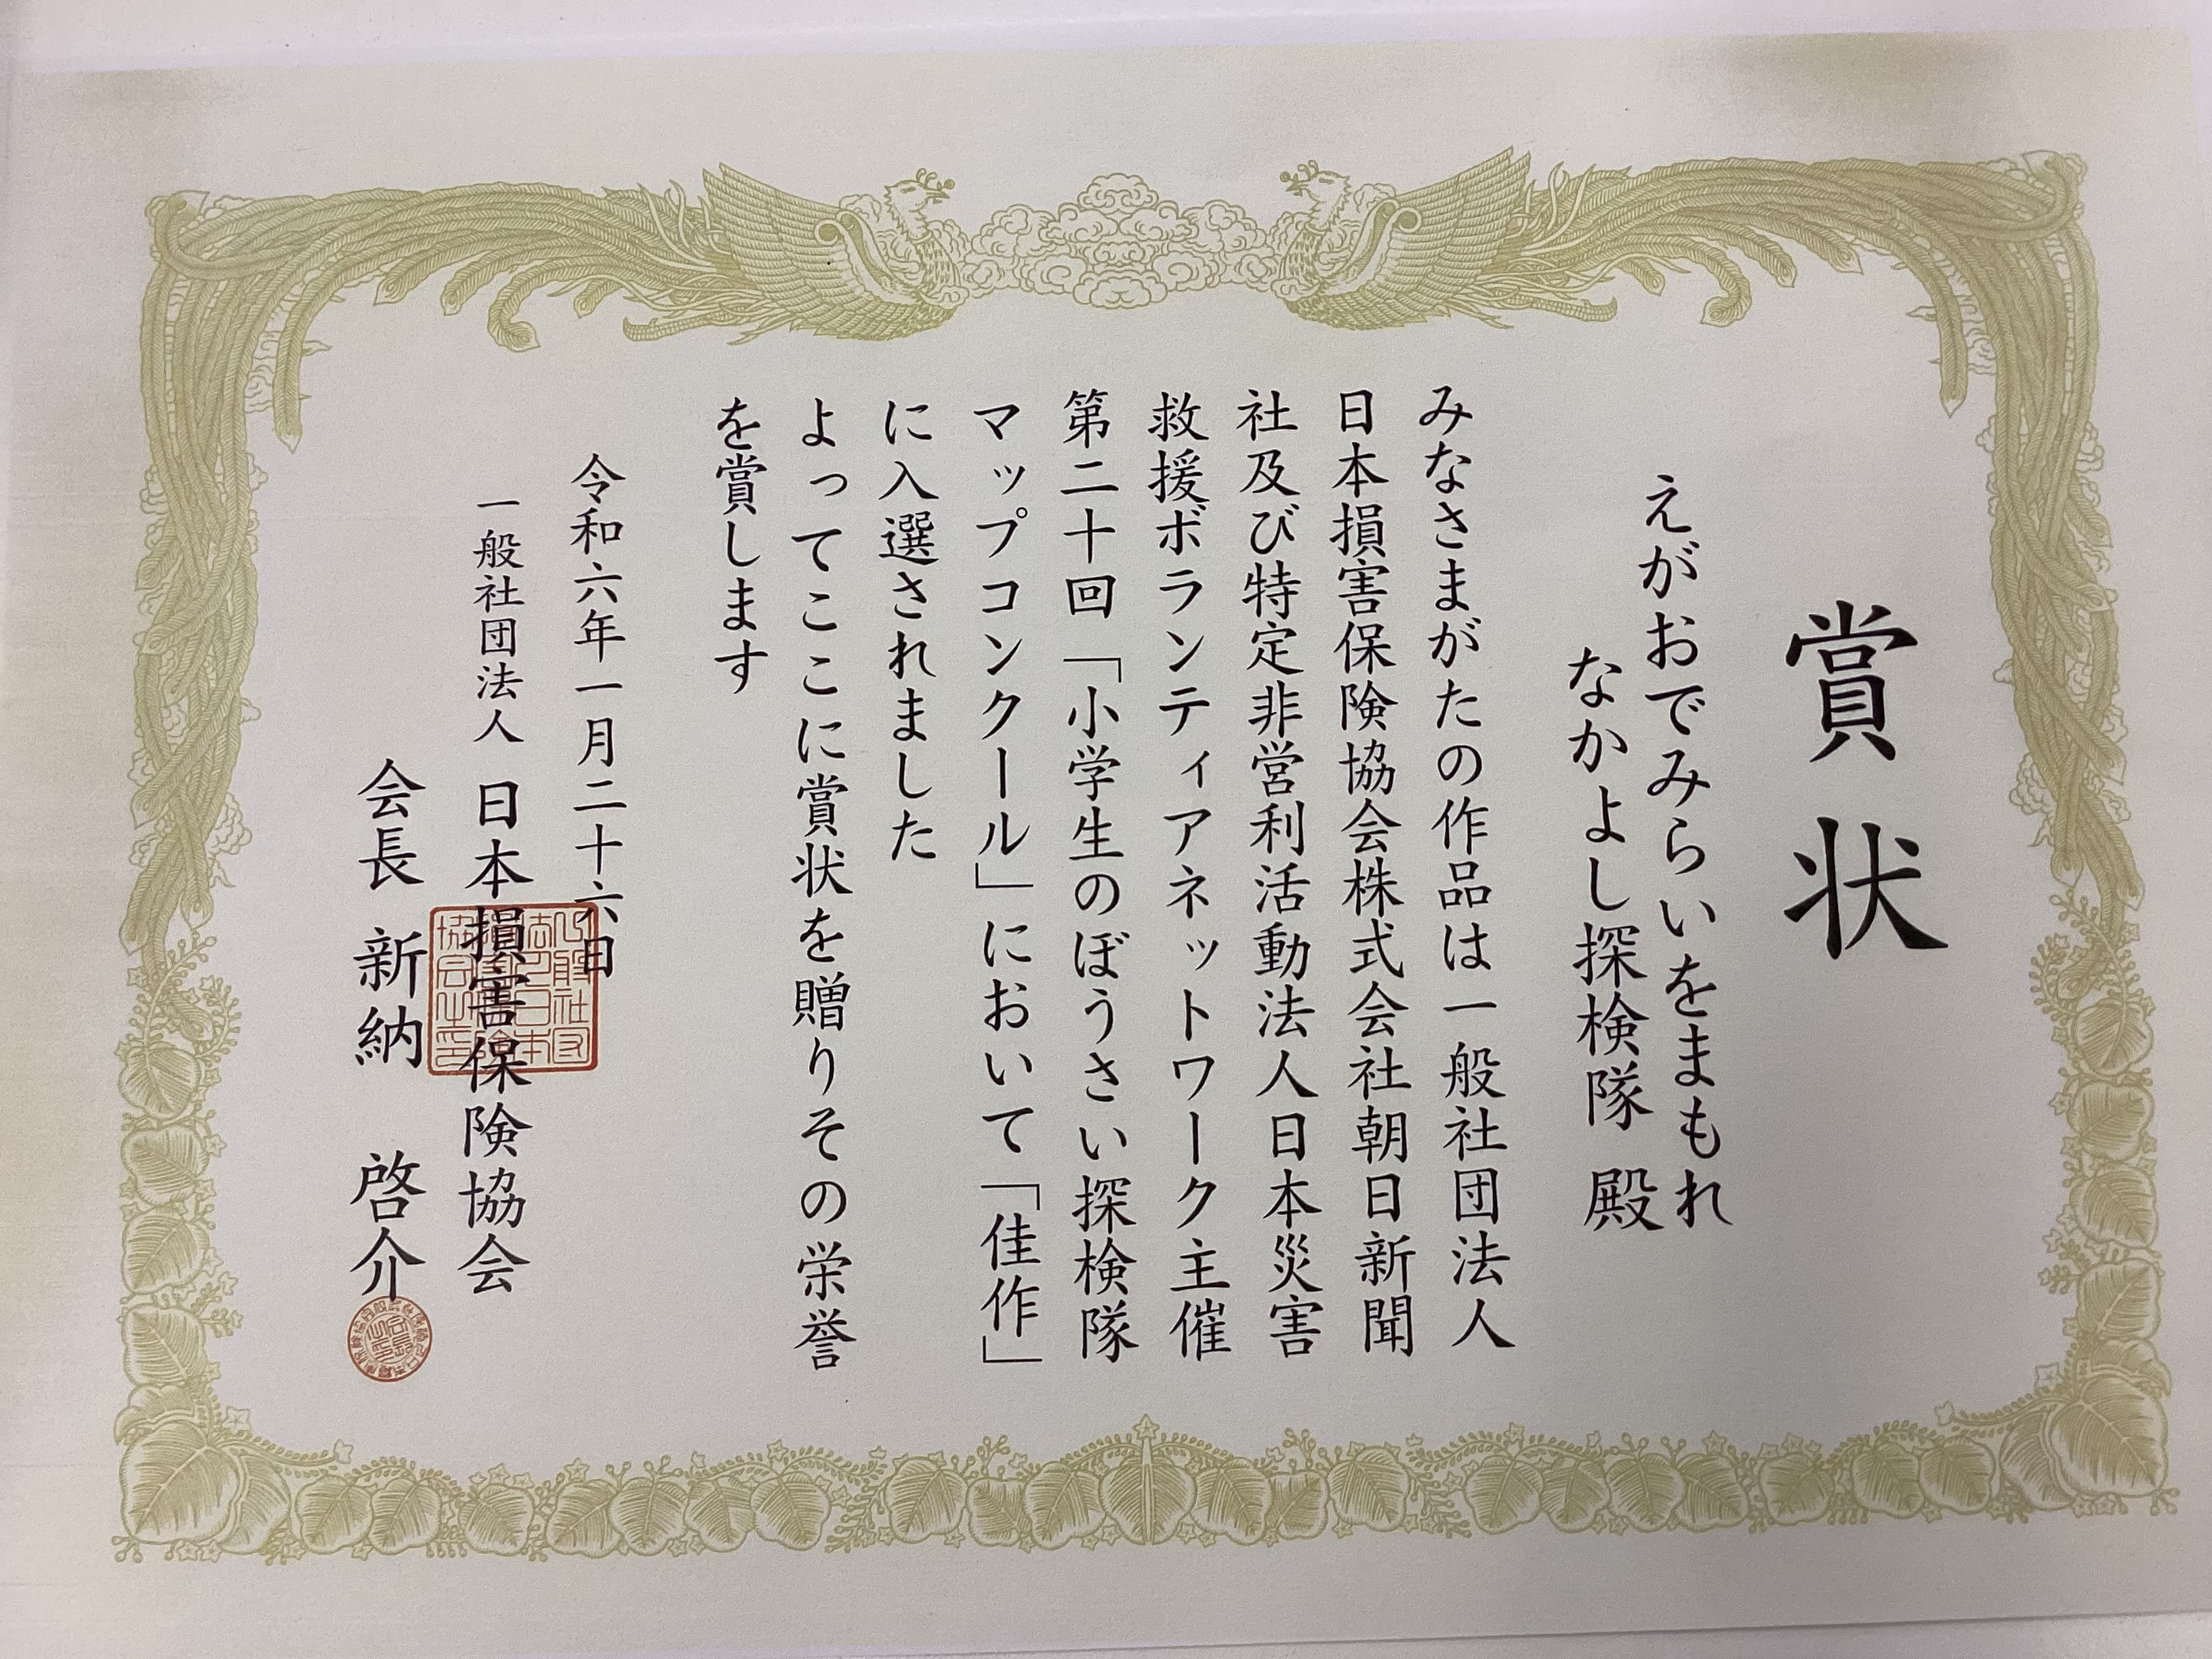 賞状
えがおでみらいをまもれ
なかよし探検隊 殿
みなさまがたの作品は一般社団法人
日本損害保険協会株式会社朝日新聞
社及び特定非営利活動法人日本災害
救援ボランティアネットワーク主催
第二十回「小学生のぼうさい探検隊
マップコンクール」において「佳作」
に入選されました
よってここに賞状を贈りその栄誉
を賞します
令和六年一月二十六日
一般社団法人 日本損害保険協会
会長 新納 啓介